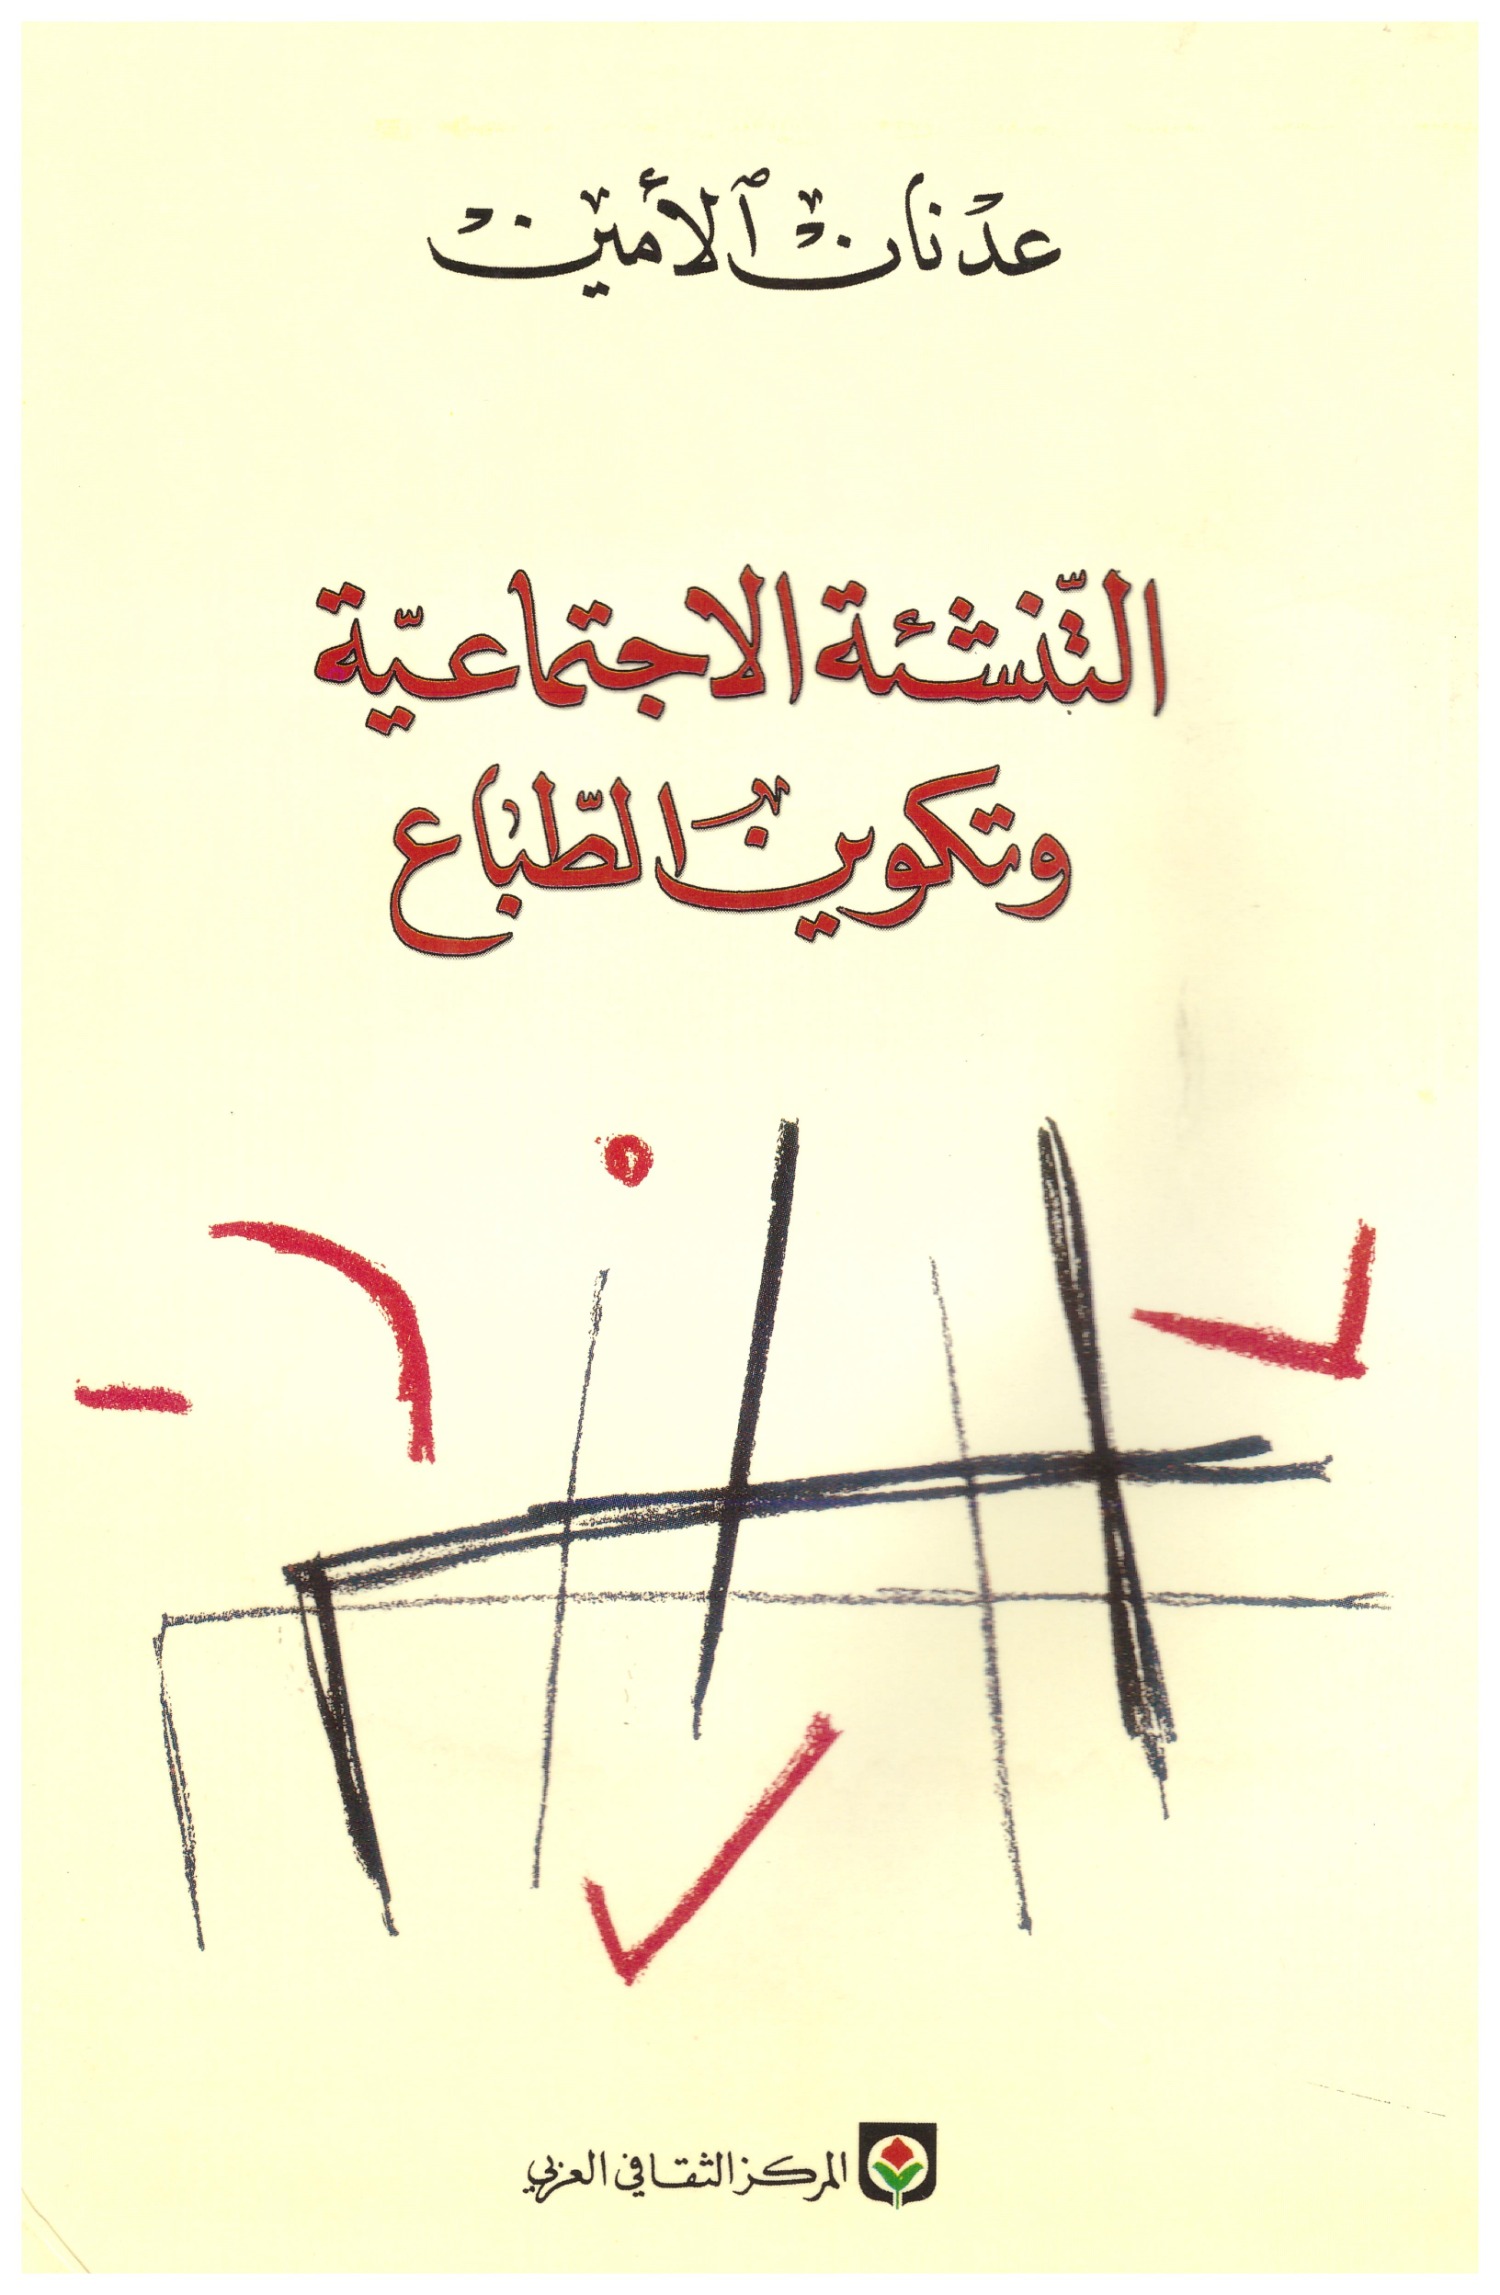 عدنان ٱلأمين
التّنشئة الاجتماعيّة
وتكوين الطّباع
المركز الثقافي العربي